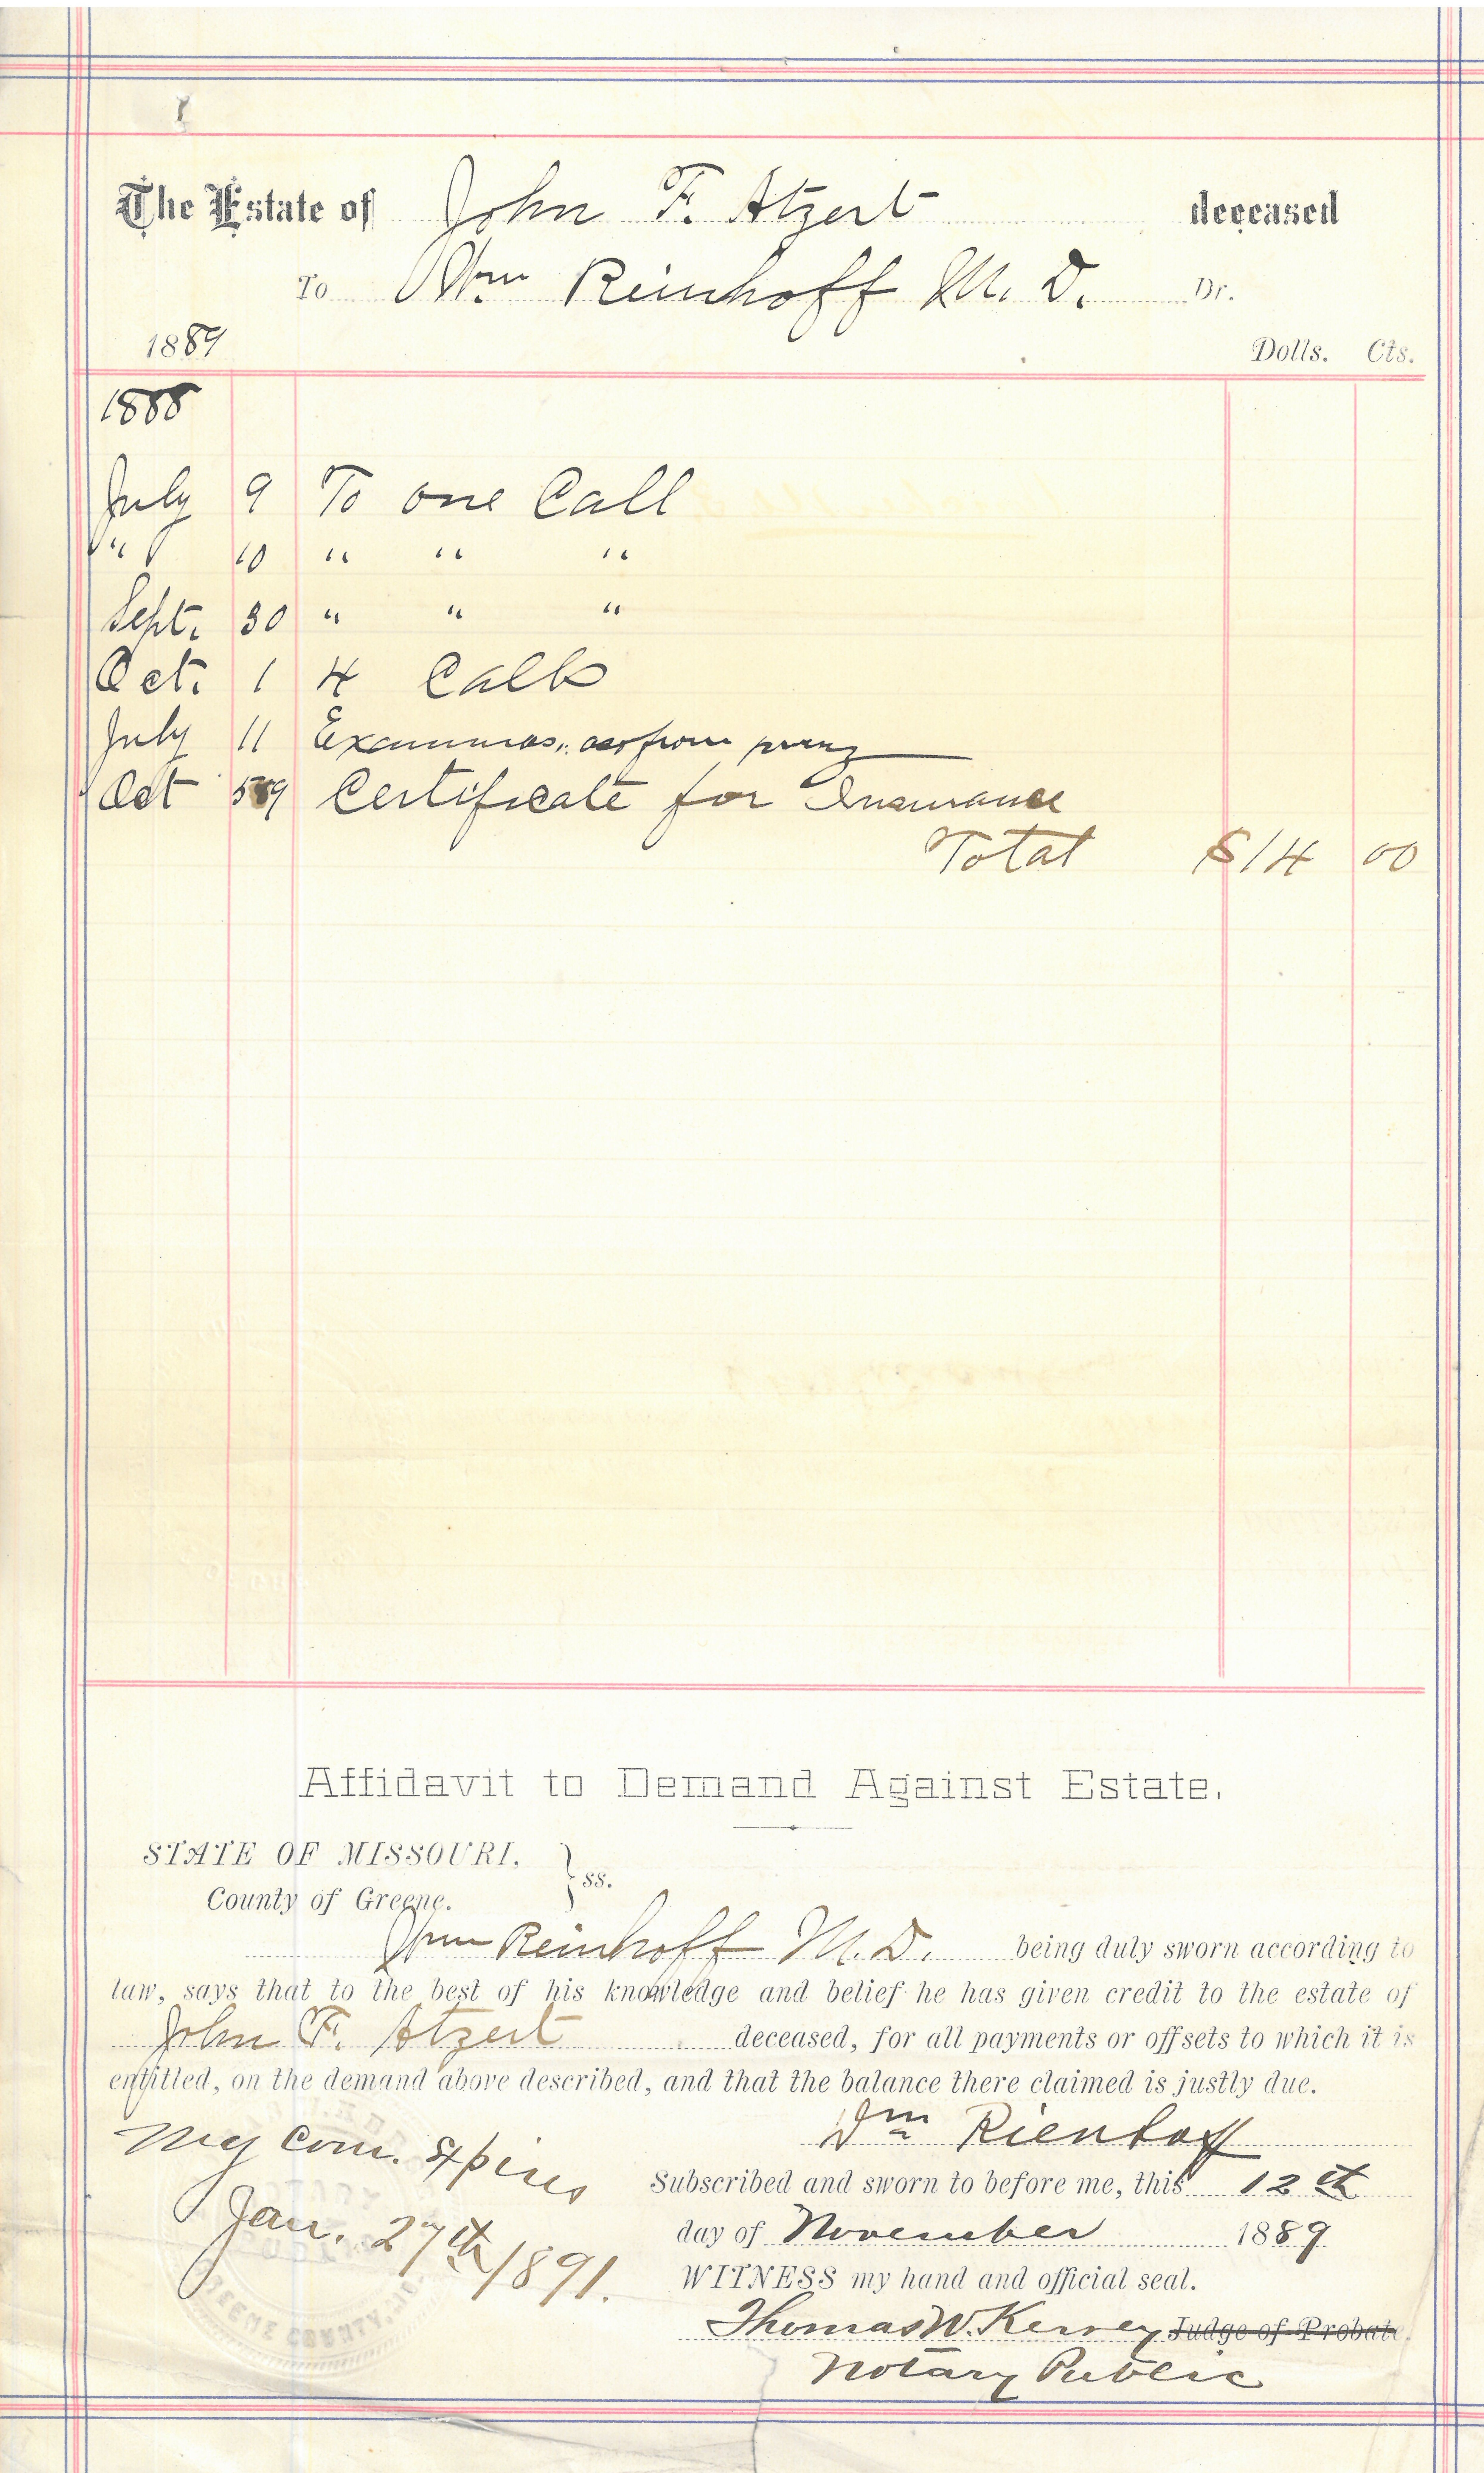 The Estate of John F. Atzert deceased
To Wm Reinhoff M. D. Dr.
1889 Dolls. Cts.
1888
July 9 To one Call
" 10 " " "
Sept. 30 " " "
Oct. 1 4 Calls
July 11
Oct Certificate for Insurance
Total $14 00
Affidavit to Demand Against Estate.
STATE OF MISSOURI,
County of Greene. } ss.
Wm Reinhoff M. D. being duly sworn according to
law, says that to the best of his knowledge and belief he has given credit to the estate of
John F. Atzert deceased, for all payments or offsets to which it is
entitled, on the demand above described, and that the balance there claimed is justly due.
Wm Rienhoff
My Com. Expires
Jan. 27th 1891.
Subscribed and sworn to before me, this 12th
day of November 1889
WITNESS my hand and official seal.
Thomas W. Kersey Judge of Probate.
Notary Public
GREENE COUNTY, MO.